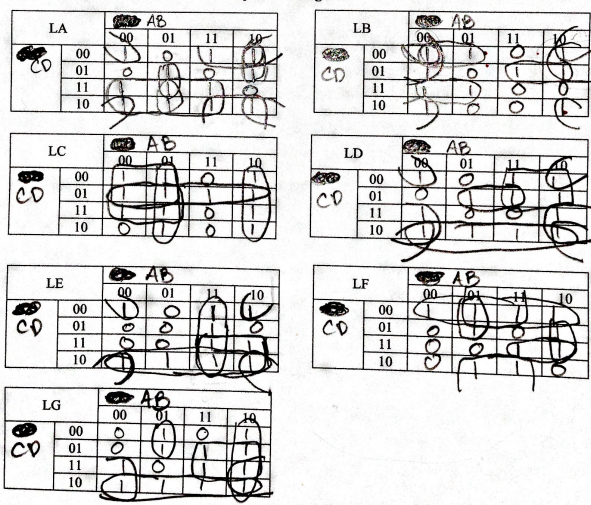 LA AB
00 01 11 10
CD 00 1 0 1 1
01 0 1 0 1
11 1 1 1 0
10 1 1 1 1
LB AB
00 01 11 10
CD 00 1 1 0 1
01 1 0 1 1
11 1 1 0 0
10 1 0 0 1
LC AB
00 01 11 10
CD 00 1 1 0 1
01 1 1 1 1
11 1 1 0 1
10 0 1 0 1
LD AB
00 01 11 10
CD 00 1 0 1 1
01 0 1 1 1
11 1 0 0 1
10 1 1 1 1
LE AB
00 01 11 10
CD 00 1 0 1 1
01 0 0 1 0
11 0 0 1 1
10 1 1 1 1
LF AB
00 01 11 10
CD 00 1 1 1 1
01 0 1 0 1
11 0 0 1 1
10 0 1 1 0
LG AB
00 01 11 10
CD 00 0 1 0 1
01 0 1 1 1
11 1 0 1 1
10 1 1 1 1